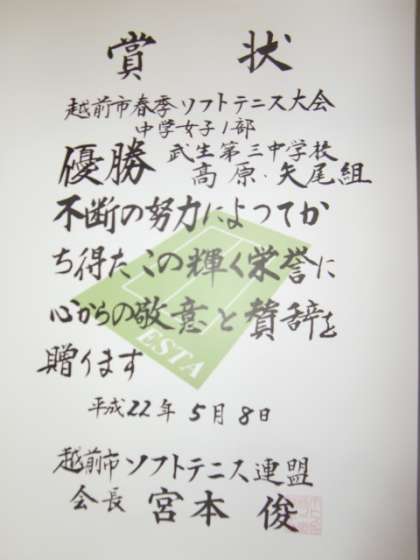 賞状
越前市春季ソフトテニス大会
中学女子1部
優勝 武生第三中学校
高原・矢尾組
不断の努力によってか
ち得たこの輝く栄誉に
心からの敬意と賛辞を
贈ります
ESTA
平成22年5月8日
越前市ソフトテニス連盟
会長 宮本俊